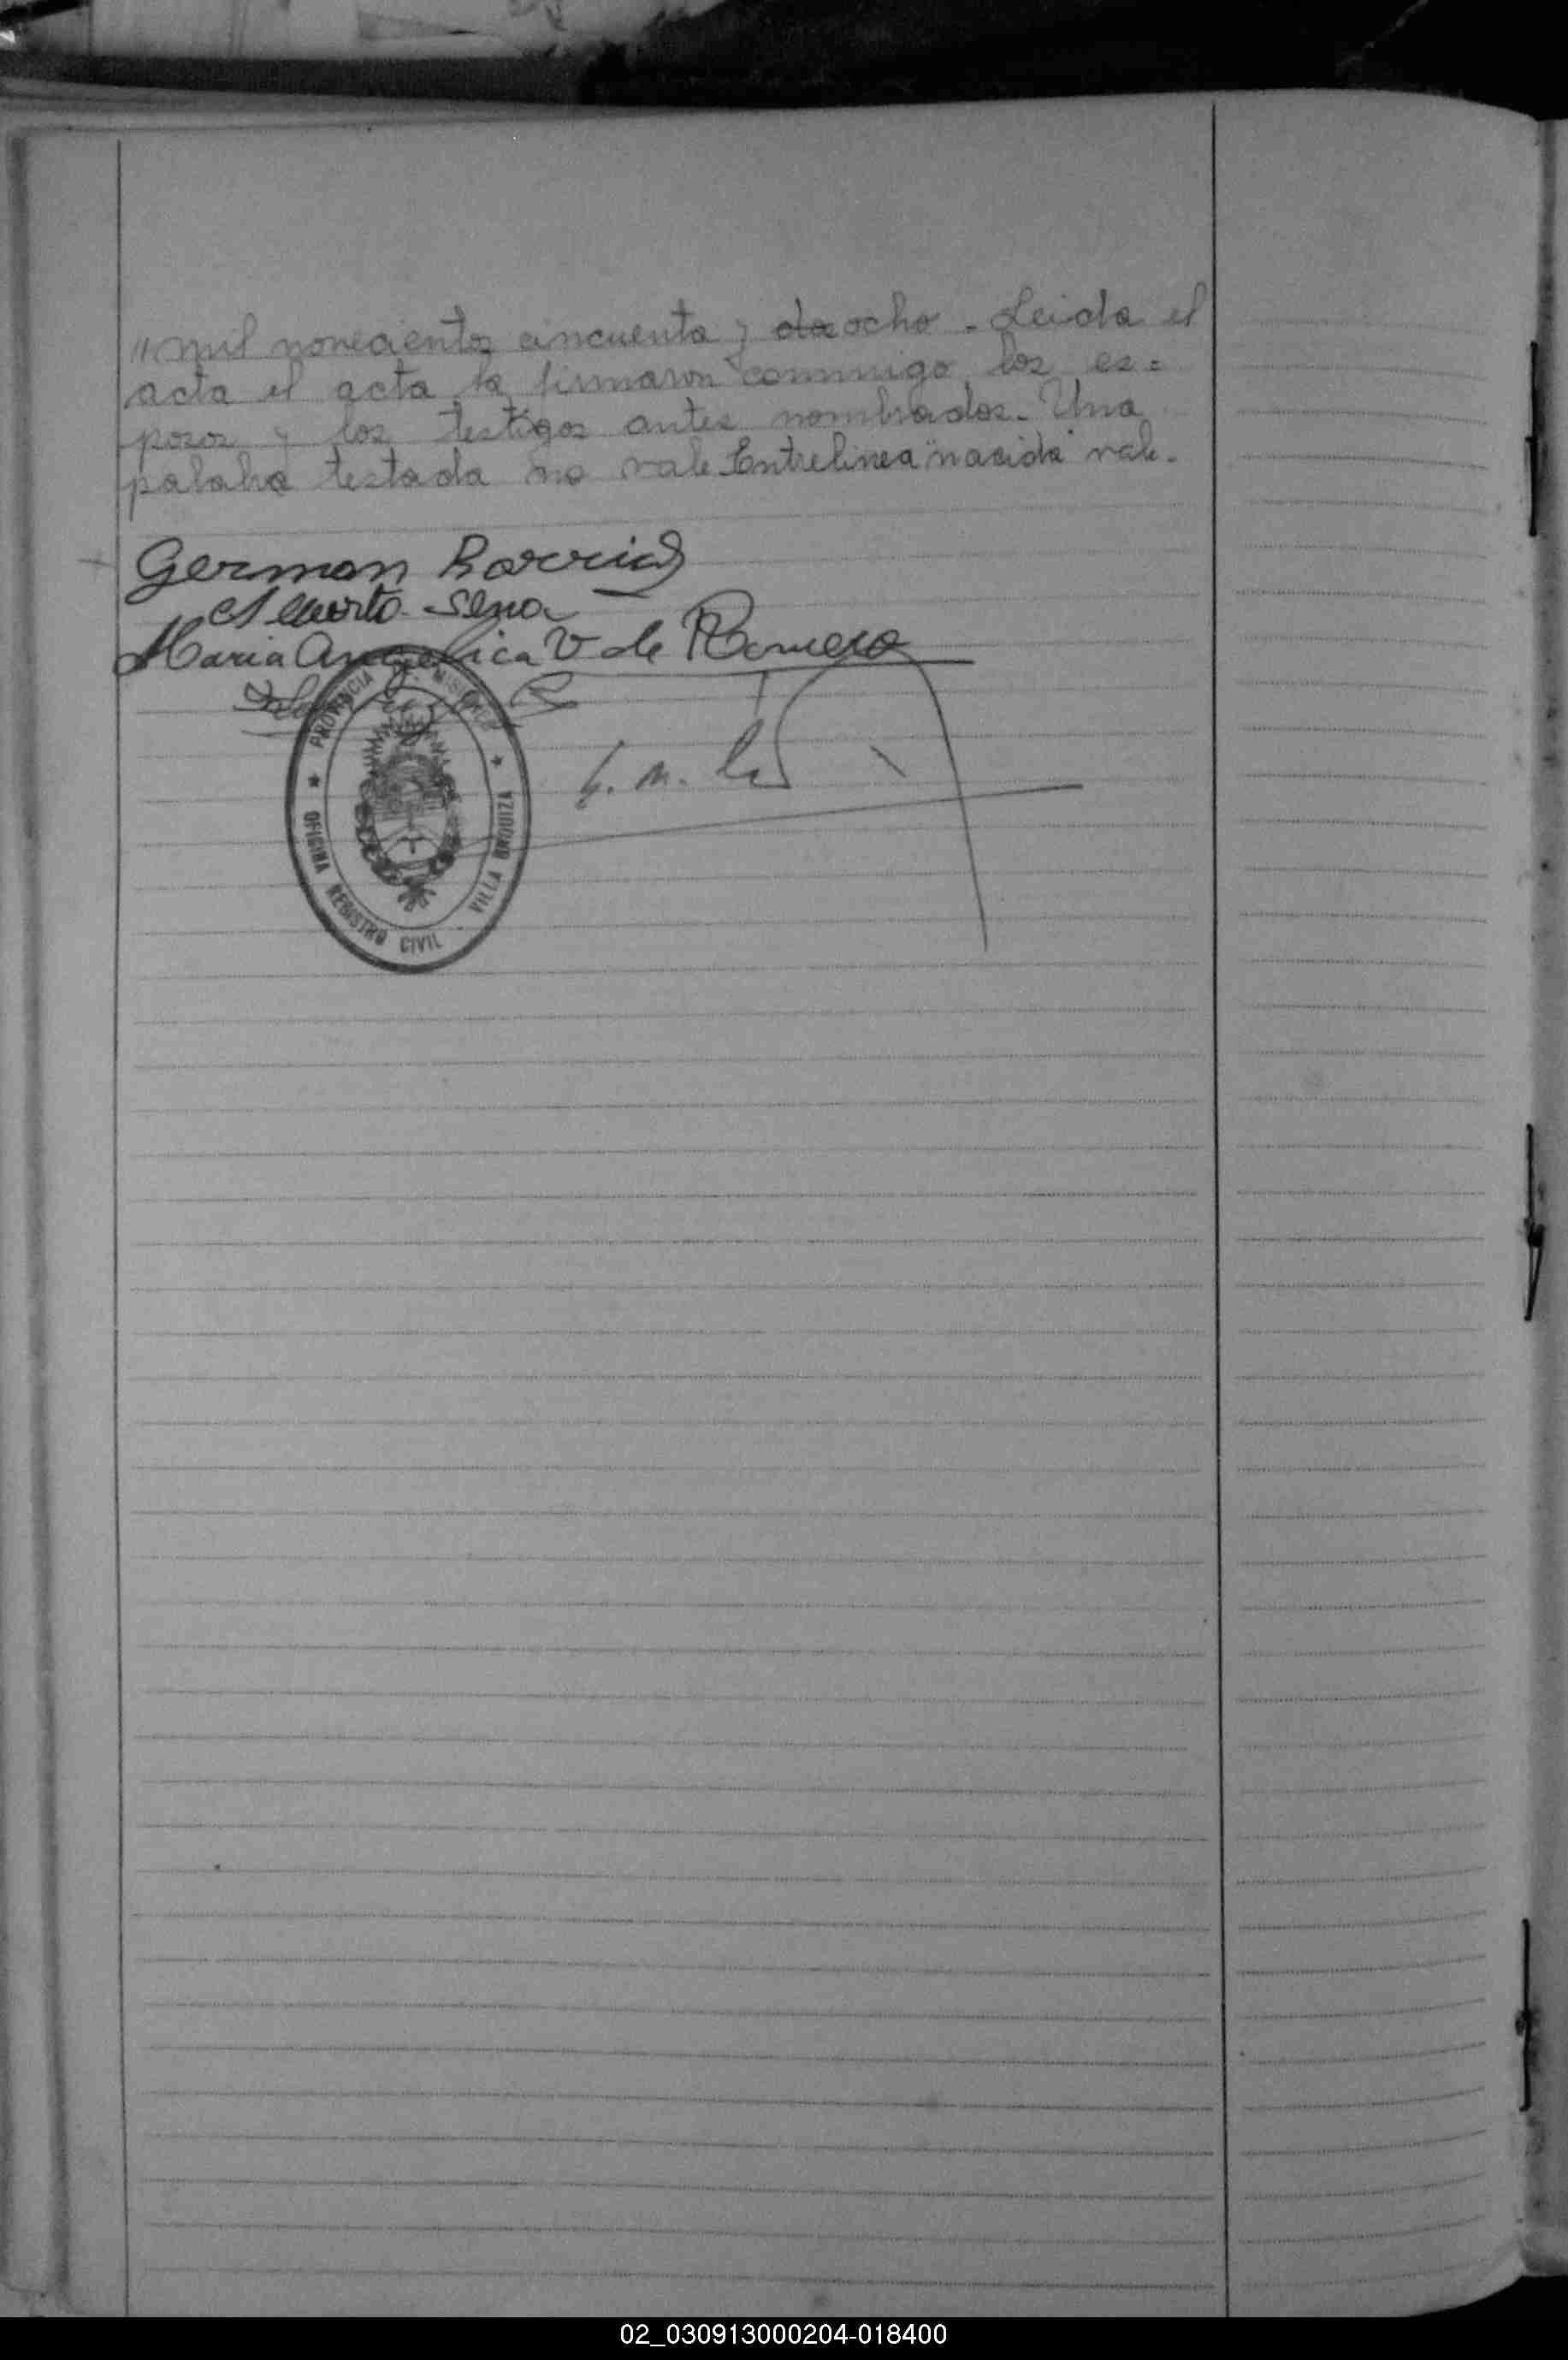 " mil novecientos cincuenta y dos ocho - Leida el
acta el acta la firmaron conmnigo los es=
posos y los testigos antes nombrados - Una
palabra testada no vale Entrelinea "nacida" vale -
German Barrios
Alberto Sena
Maria Angelica V de Romero
PROVINCIA MISIONES
OFICINA REGISTRO CIVIL VILLA URQUIZA
02_030913000204-018400